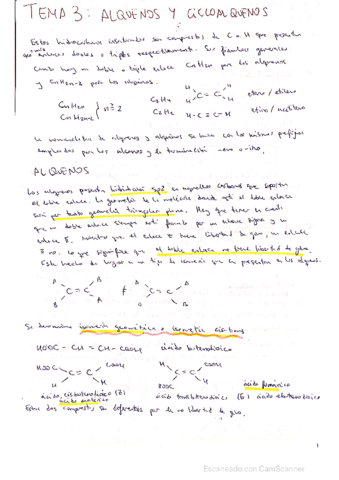 TEMA 3: ALQUENOS Y CICLOALQUENOS
Estos hidrocarburos insaturados son compuestos de C e H que presentan
enlaces dobles o triples respectivamente. Sus fórmulas generales
hay un doble o triple enlace CnH2n para los alquenos
y CnH2n-2 para los alquinos.
CnH2n
CnH2n-2 } n ≥ 2
C2H4 H H C = C H H eteno / etileno
C2H2 H-C≡C-H etino / acetileno
La nomenclatura de alquenos y alquinos se hace con los mismos prefijos
empleados para los alcanos y la terminación -eno o -ino.
ALQUENOS
Los alquenos presentan hibridación sp2 en aquellos carbonos que soportan
el doble enlace. La geometría de la molécula donde está el doble enlace
será por tanto geometría triangular plana. Hay que tener en cuenta
que un doble enlace siempre está formado por un enlace sigma y un
enlace π, mientras que el enlace σ tiene libertad de giro, un enlace
π no, lo que significa que el doble enlace no tiene libertad de giro.
Este hecho da lugar a un tipo de isomería que se presenta en los alquenos.
A B C = C A B ≠ A B C = C B
Se denomina isomería geométrica o isomería cis-trans
HOOC - CH = CH - COOH ácido butenodioico
HOOC H C = C COOH H
H HOOC C = C COOH H
ácido fumárico
ácido cisbutenodioico (Z)
ácido maleico
ácido transbutenodioico (E)
Estos dos compuestos son diferentes por la no libertad de giro.
1
Escaneado con CamScanner